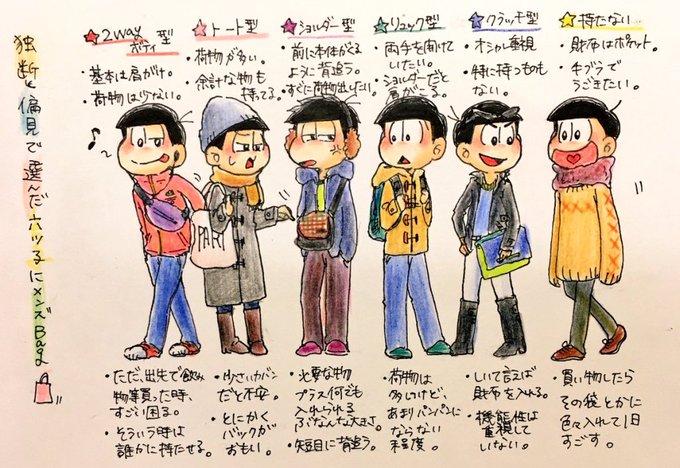 独断と偏見で選んだ六つ子にメンズBag
★2way
ボディ型
・基本は肩がけ。
・荷物は少ない。
★トート型
・荷物が多い。
・余計な物も
持ってる。
★ショルダー型
・前に本体がくる
ように背追う。
・すぐに荷物出したい。
★リュック型
・両手を開けて
いたい。
・ショルダーだと
肩がこる。
★クラッチ型
・オシャレ重視
・特に持つもの
ない。
★持たない…
・財布はポケット。
・手ブラで
うごきたい。
♪
PART
・ただ、出先で飲み
物等買った時、
すごい困る。
・そういう時は
誰かに持たせる。
・小さいカバン
だと不安。
・とにかく
バックが
おもい。
・必要な物
プラス何でも
入れられる
ぶなんな大きさ。
・短目に背追う。
・荷物は
多いけど、
あまりパンパンに
ならない
程度。
・しいて言えば
財布を入れる。
・機能性は
重視して
いない。
・買い物したら
その袋とかに
色々入れて1日
すごす。